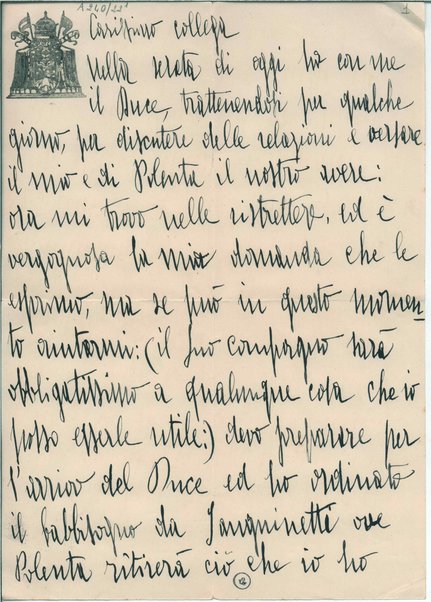 A 240/221
1
Carissimo collega
nella serata di oggi ho con me
il Duce, trattenendosi per qualche
giorno, per discutere delle relazioni e versare
il mio e di Polenta il nostro avere:
ora mi trovo nelle ristrettezze, ed è
vergognosa la mia domanda che le
esprimo, ma se può in questo momen-
to aiutarmi: (il suo compagno sarà
obbligatissimo a qualunque cosa che io
posso esserle utile:) devo preparare per
l'arrivo del Duce ed ho ordinato
il fabbisogno da Sanguinetti ove
Polenta ritirerà ciò che io ho